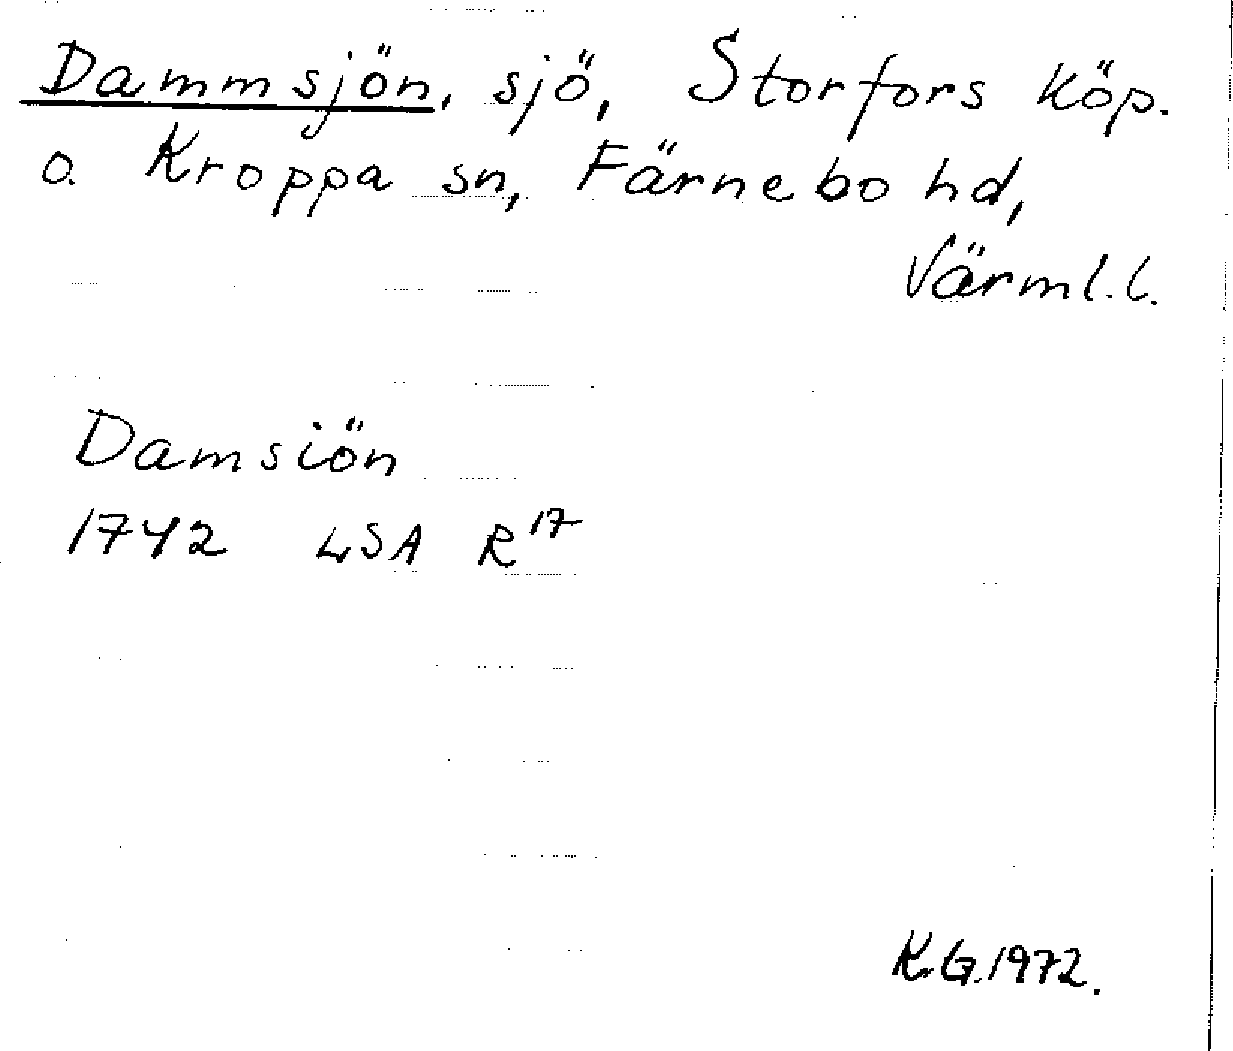 Dammsjön, sjö, Storfors köp.
o. Kroppa sn, Färnebo hd,
Värml. l.
Damsiön
1742 LSA R17
K.G. 1972.